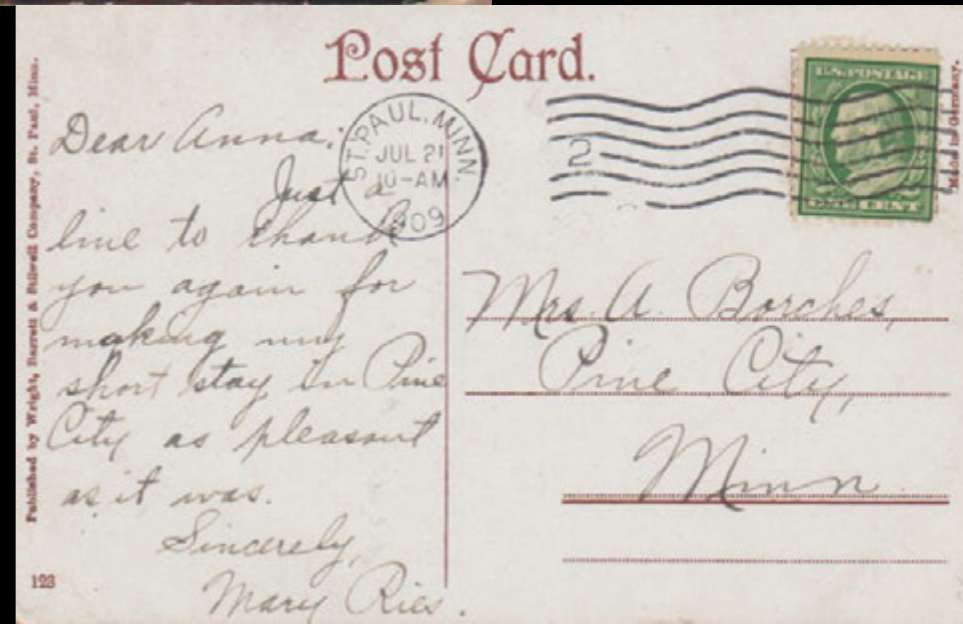 Post Card.
Published by Wright, Barrett & Stilwell Company, St. Paul, Minn.
Dear Anna:
Just a
line to thank
you again for
making my
short stay in Pine
City as pleasant
as it was.
Sincerely,
Mary Ries.
123
ST. PAUL, MINN.
JUL 21
10-AM
1909
2
U.S. POSTAGE
Made in Germany.
Mrs. A. Borches,
Pine City,
Minn.